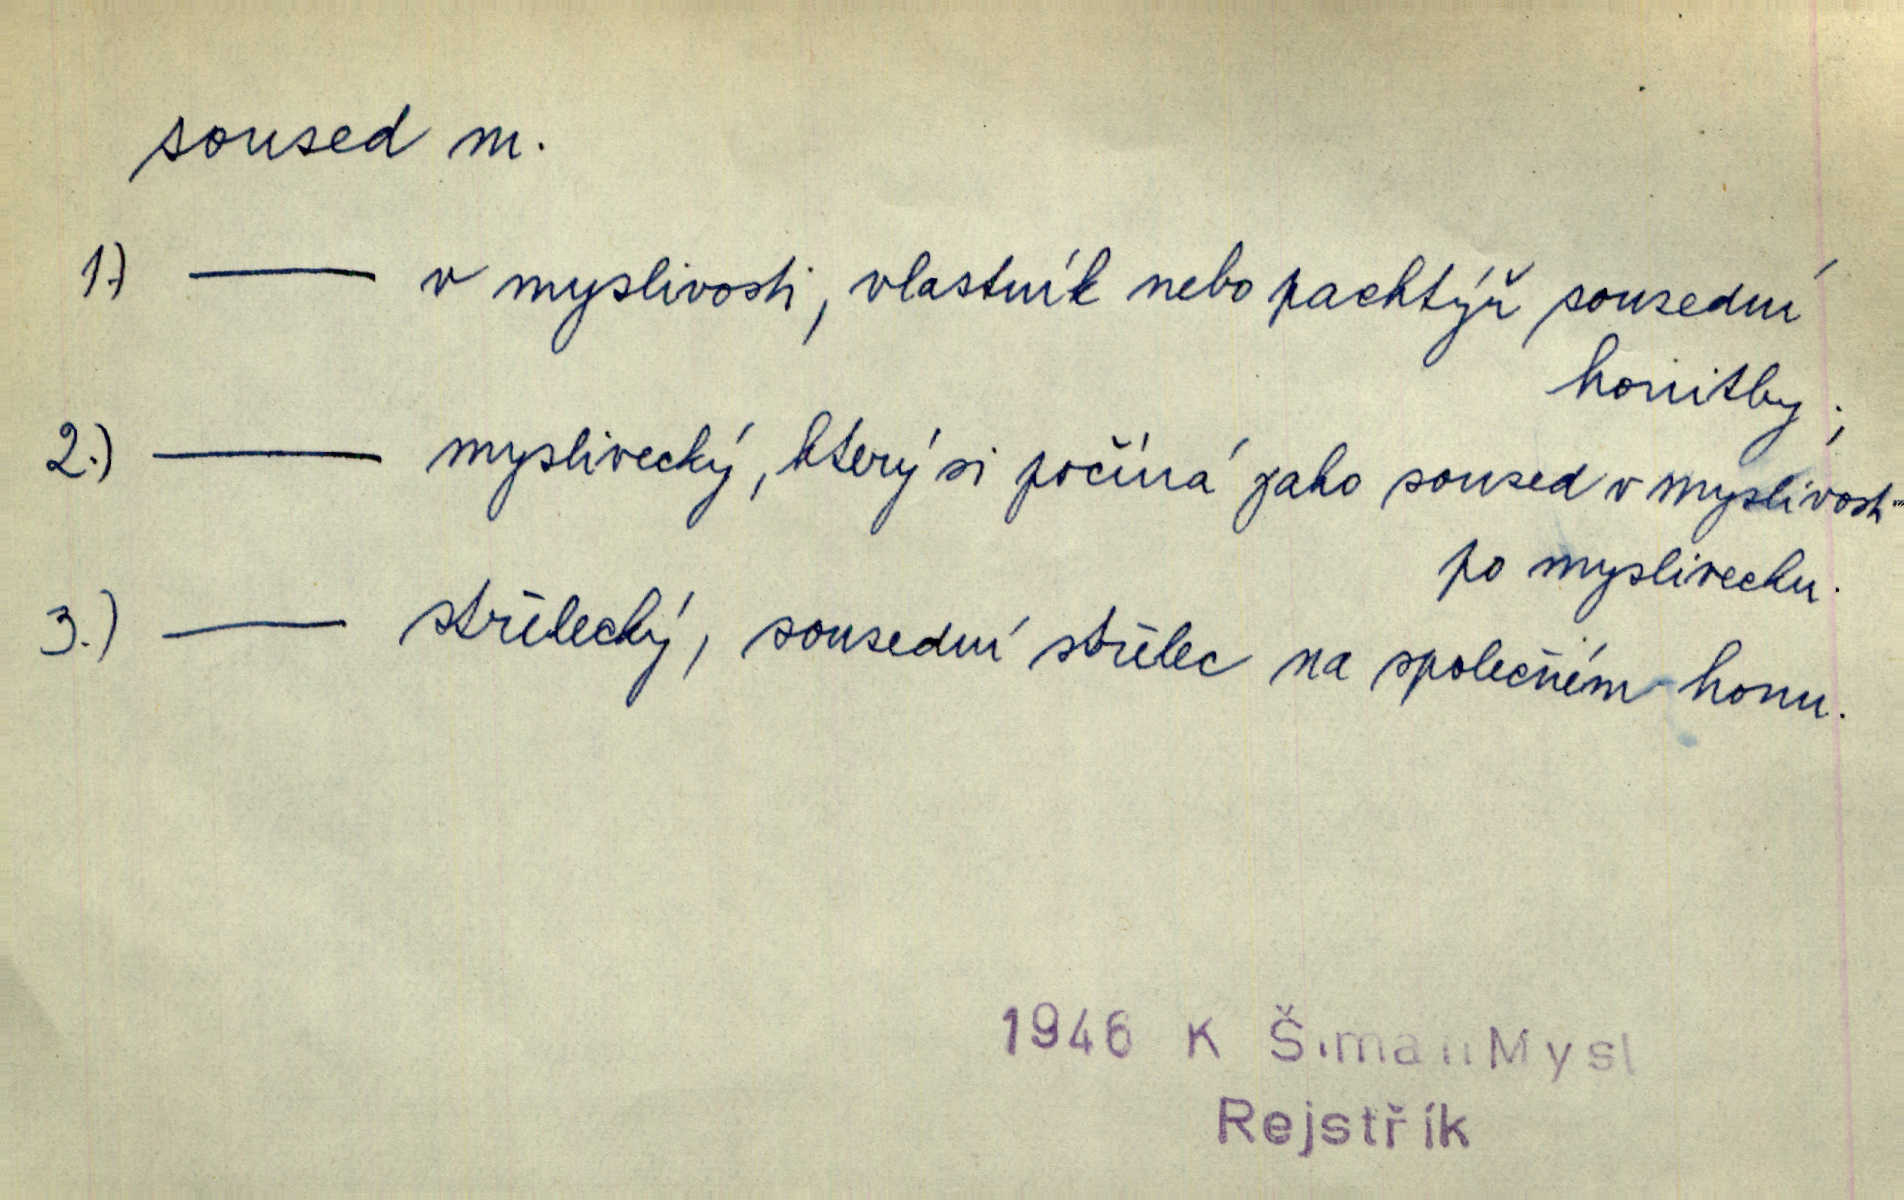 soused m.
1.) ——— v myslivosti, vlastník nebo pachtýř sousední
honitby;
2.) ——— myslivecký, který si počíná jako soused v myslivosti
po myslivecku.
3.) ——— střelecký, sousední střelec na společném honu.
1946 K ŠimanMysl
Rejstřík